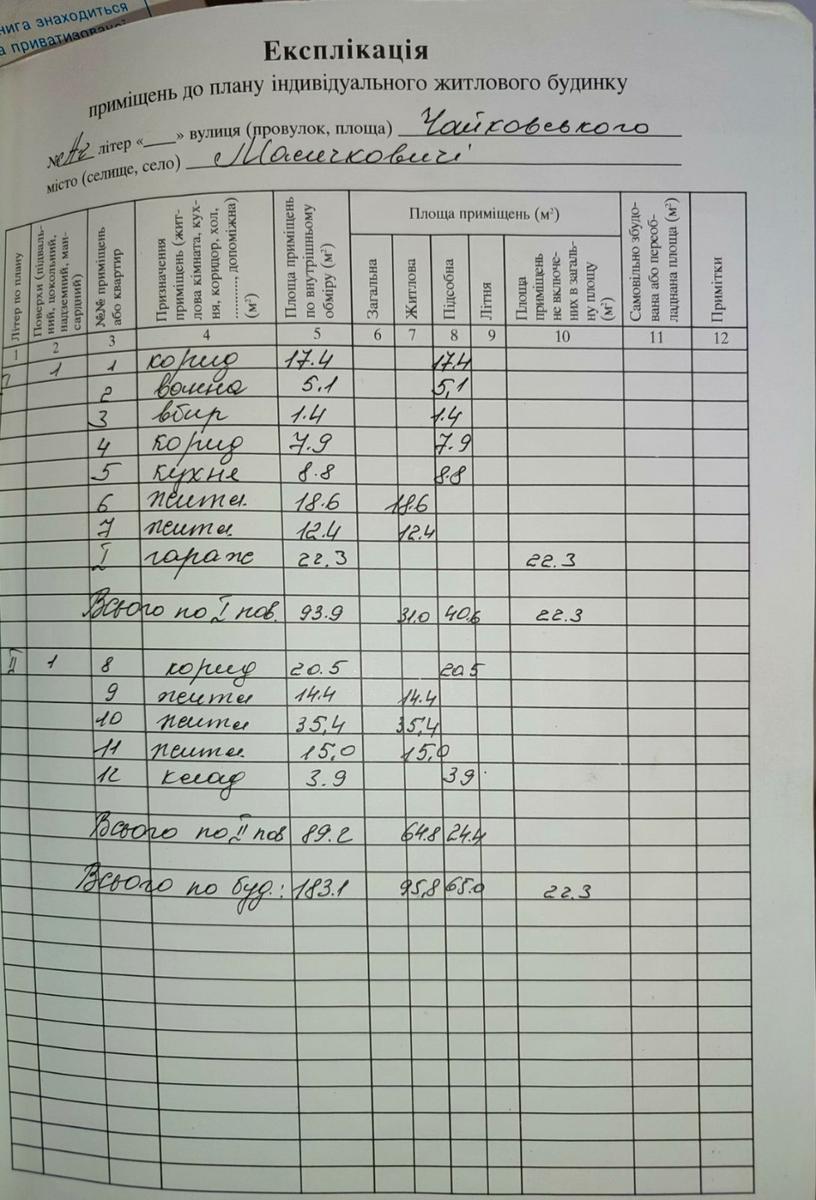 нига знаходиться
а приватизовано
Експлікація
приміщень до плану індивідуального житлового будинку
№ літер «___» вулиця (провулок, площа) Чайковського
місто (селище, село)
Літер по плану
Поверхи (підвальний, цокольний, надземний, мансардний)
№№ приміщень або квартир
Призначення приміщень (житлова кімната, кухня, коридор, хол, ............, допоміжна) (м²)
Площа приміщень по внутрішньому обміру (м²)
Площа приміщень (м²)
Загальна
Житлова
Підсобна
Літня
Площа приміщень не включених в загальну площу (м²)
Самовільно збудована або переобладнана площа (м²)
Примітки
1 2 3 4 5 6 7 8 9 10 11 12
1 1 корид 17.4 17.4
2 ванна 5.1 5,1
3 вбир 1.4 1.4
4 корид 7.9 7.9
5 кухня 8.8 8.8
6 житла 18.6 18.6
7 житла 12.4 12.4
I гараж 22.3 22.3
Всього по I пов. 93.9 31.0 40.6 22.3
II 1 8 корид 20.5 20.5
9 житла 14.4 14.4
10 житла 35,4 35,4
11 житла 15,0 15,0
12 клад 3.9 3.9
Всього по II пов 89.2 64.8 24.4
Всього по буд.: 183.1 95,8 65.0 22.3